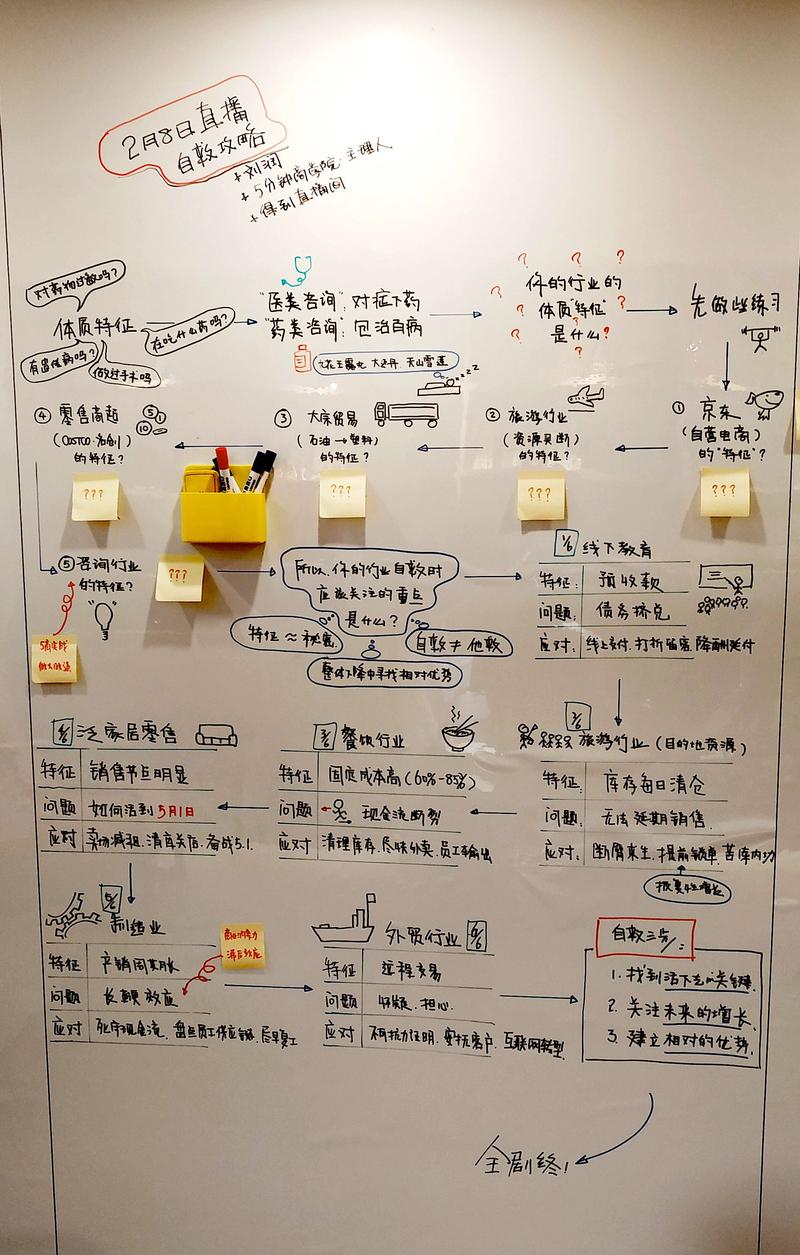 2月8日直播
自救攻略
+ 刘润
+ 5分钟商学院·主理人
+ 得到直播间
对药物过敏吗?
体质特征
在吃什么药吗?
有冒住病吗?
做过手术吗
"医类咨询":对症下药
"药类咨询":包治百病
大还丹 天山雪莲
你的行业的
体质"特征"
是什么?
? ? ? ? ? ? ? ?
先做些练习
zzz
① 京东
(自营电商)
的"特征"?
???
② 旅游行业
(资源贝断)
的特征?
???
③ 大宗贸易
(石油→塑料)
的特征?
???
④ 零售商超
(COSTCO·名创)
的特征?
???
⑤ 咨询行业
的特征?
???
你的行业自救时
应该关注的重点
是什么?
特征≈秘密
自救≠他救
整体下降中寻找相对优势
1/6 线下教育
特征: 预收款
问题: 债务挤兑
应对: 线上交付.打折留客.降酬延付
2/6 旅游行业(目的地资源)
特征: 库存每日清仓
问题: 无法延期销售.
应对: 断臂求生.提前锁单.苦练内功
恢复性增长
3/6 餐饮行业
特征 固定成本高(60%-85%)
问题 现金流断裂
应对 清理库存.尽味外卖.员工输出
4/6 泛家居零售
特征 销售节点明显
问题 如何活到5月1日
应对 卖场减租.清盲关店.备战5.1.
5/6 制造业
特征 产销周期长
问题 长鞭效应
应对 死守现金流.盘点员工供应链.尽早复工
滞后效应
外贸行业 6/6
特征 远程交易
问题 怀疑.担心.
应对 不可抗力证明.安抚客户.互联网转型
自救三步:
1. 找到活下去的关键.
2. 关注未来的增长.
3. 建立相对的优势.
全剧终!